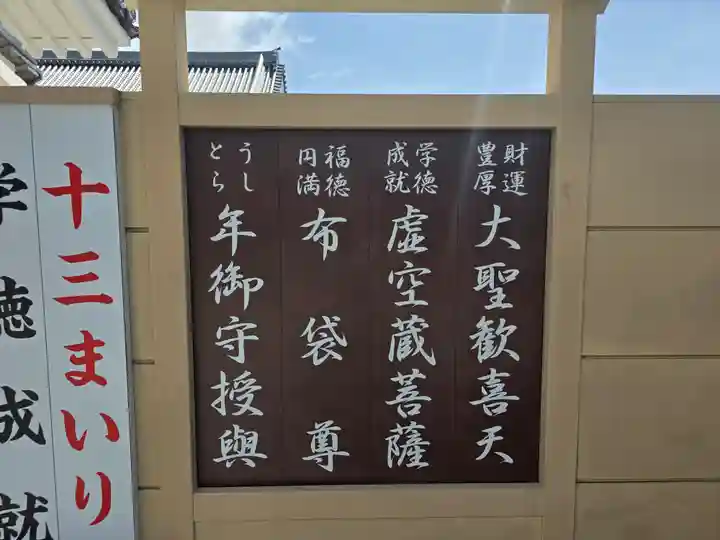 財運豊厚 大聖歓喜天
学徳成就 虚空蔵菩薩
福徳円満 布袋尊
うしとら年御守授與
十三まいり
学徳成就